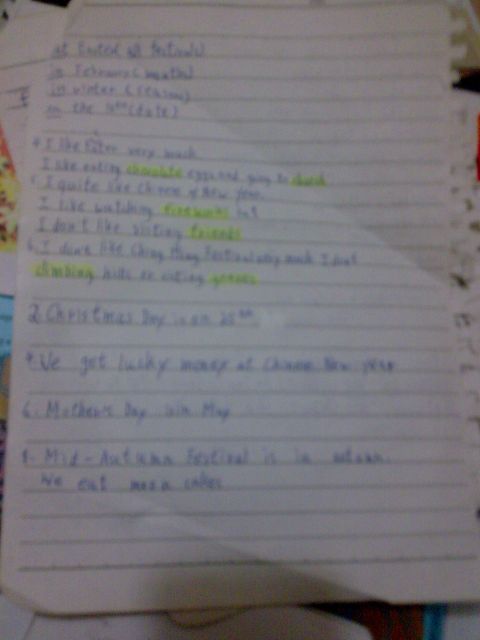 at Easter (festivals)
in February (month)
in winter (season)
on the (date)
4. I like Easter very much.
I like eating chocolate eggs and going to church
5. I quite like Chinese New Year.
I like watching fireworks but
I don't like visiting friends
6. I don't like Ching Ming Festival very much. I don't
climbing hills or
2. Christmas Day is on 25th.
4. We get lucky money at Chinese New Year
6. Mother's Day is in May
8. Mid-Autumn Festival is in autumn.
We eat moon cakes